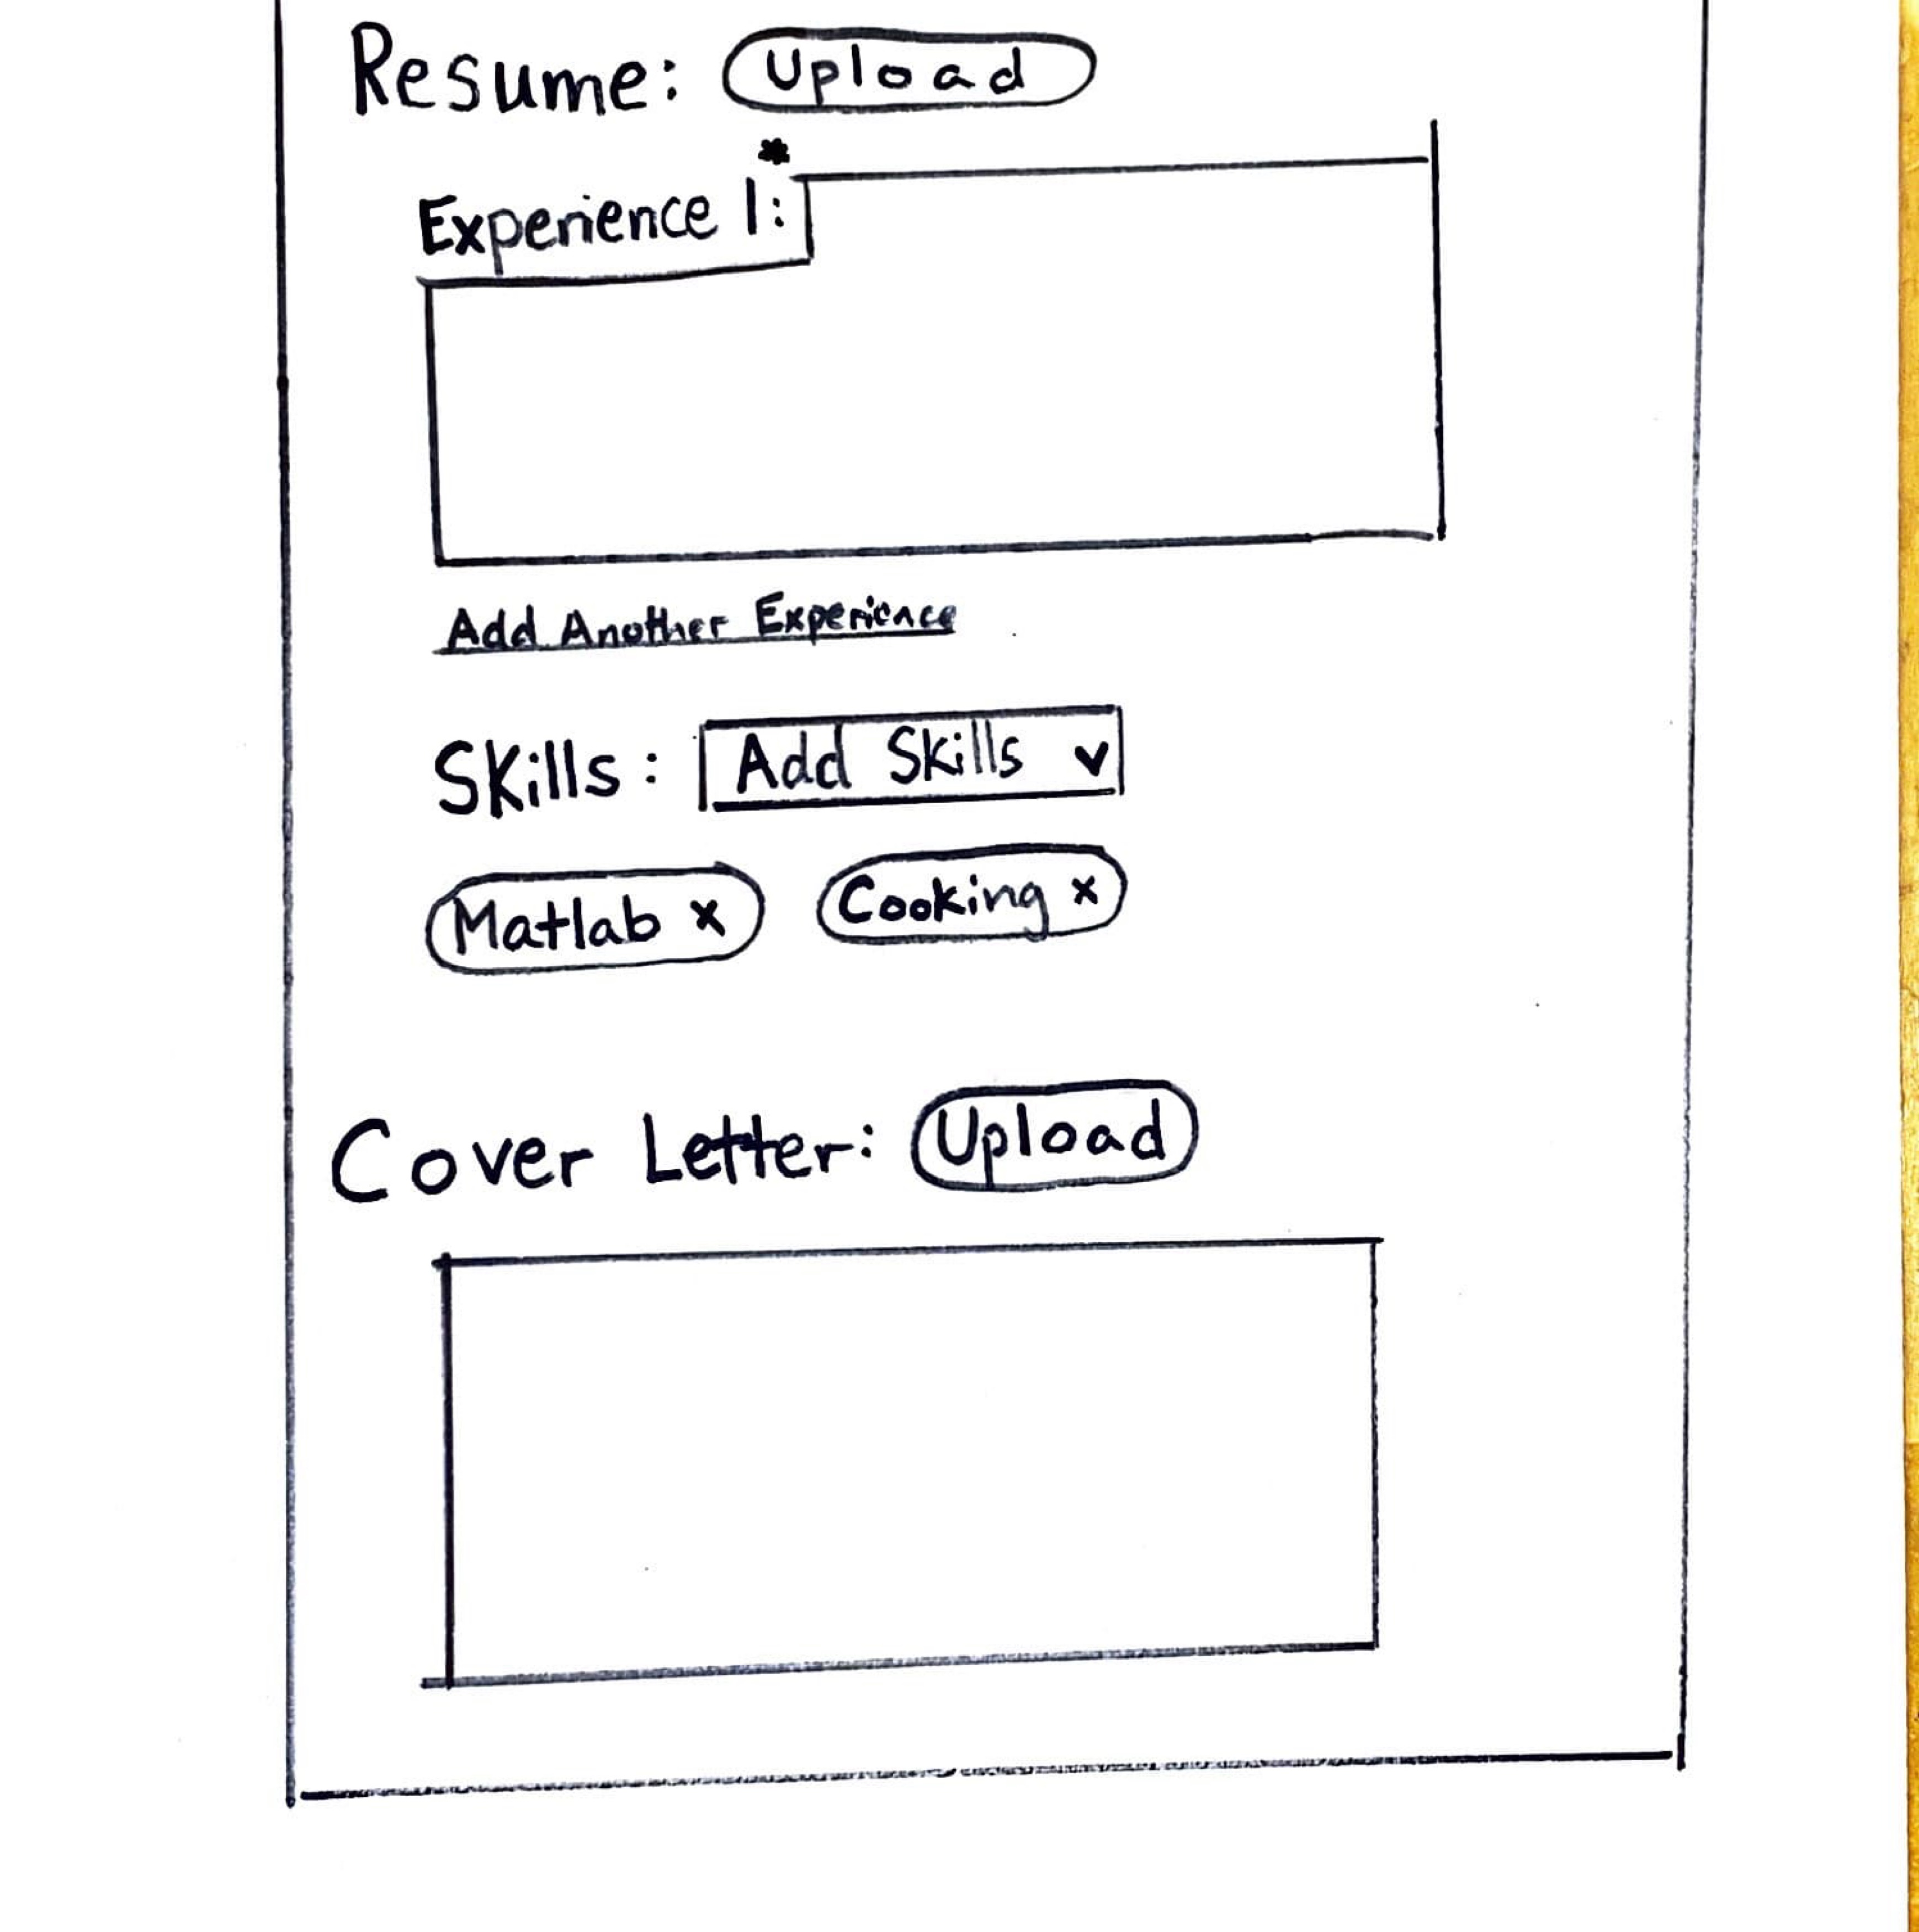 Resume: Upload
*
Experience 1:
Add Another Experience
Skills: Add Skills v
Matlab x Cooking x
Cover Letter: Upload